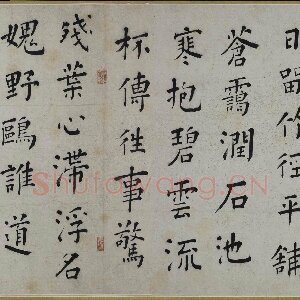 日留竹徑平鋪
蒼靄潤石池
寒抱碧雲流
杯傳往事驚
殘葉心滯浮名
媿野鷗誰道
Shufawang.CN